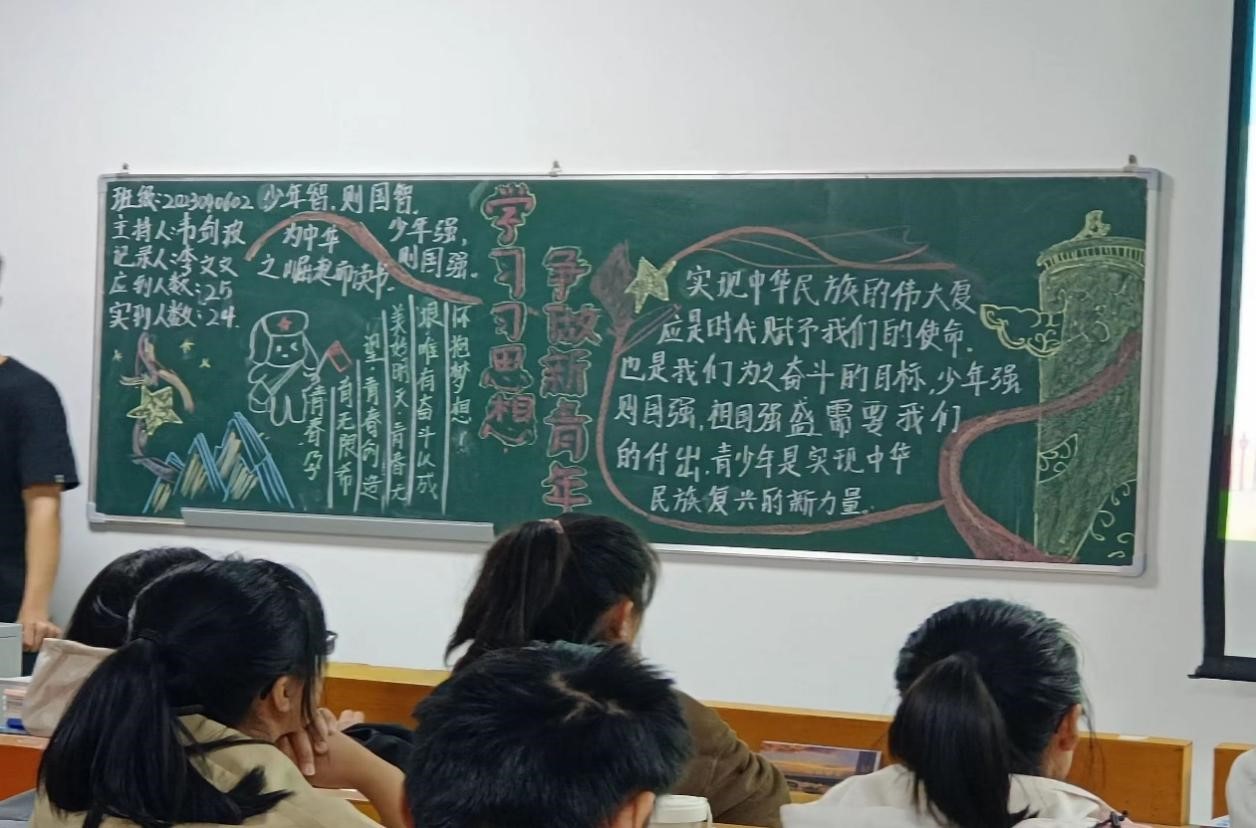 班级:2023040602
主持人:韦剑波
记录人:李文文
应到人数:25
实到人数:24
少年智,则国智,
少年强,
则国强。
为中华
之崛起而读书.
怀抱梦想!
浪,唯有奋斗以成
美好明天.青春无
望.青春创造
有无限希
青春孕
学习习思想
争做新青年
实现中华民族的伟大复
应是时代赋予我们的使命.
也是我们为之奋斗的目标,少年强
则国强,祖国强盛需要我们
的付出.青少年是实现中华
民族复兴的新力量.